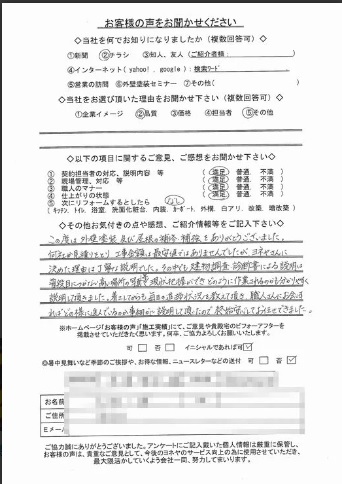 お客様の声をお聞かせください
◇当社を何でお知りになりましたか（複数回答可）◇
①新聞 ②チラシ ③知人、友人（ご紹介者様：　）
④インターネット(yahoo!．google)：検索ﾜｰﾄﾞ
⑤営業の訪問 ⑥外壁塗装セミナー ⑦その他(　)
◇当社をお選び頂いた理由をお聞かせ下さい（複数回答可）◇
①企業イメージ ②品質 ③価格 ④担当者 ⑤その他
◇以下の項目に関するご意見、ご感想をお聞かせ下さい◇
① 契約担当者の対応、説明内容 等 （満足 普通 不満）
② 現場管理、対応 等 （満足 普通 不満）
③ 職人のマナー （満足 普通 不満）
④ 仕上がりの状態 （満足 普通 不満）
⑤ 次にリフォームするとしたら なし
（ｷｯﾁﾝ、ﾄｲﾚ、浴室、洗面化粧台、内装、ｶｰﾎﾟｰﾄ、外構、白アリ、増改築）
◇その他お気付きの点や感想、ご紹介情報等をご記入下さい◇
この度は外壁塗装及び屋根の補修 補強をありがとうございました。
何社か見積りをとり 工事金額は最安値ではありませんでしたが、ヨネヤさんに
決めた理由は丁寧な説明でした。その中でも 建物調査診断書による説明は
※ホームページ「お客様の声／施工実績」にて、ご意見や貴殿宅のビフォーアフターを
掲載させていただきたく思います。何卒、ご協力よろしくお願いいたします。
可 □ 否 □ イニシャルであれば可 ☑
◎暑中見舞いなど季節のご挨拶や、お得な情報、ニュースレターなどの送付 可 □ 否 ☑
お名前
ご住所
Eメール
ご協力誠にありがとうございました。アンケートにご記入戴いた個人情報は厳重に保管し、
お客様の声は、貴重なご意見として、今後のヨネヤのサービス向上の為に使用させていただき、
最大限活かしていくよう会社一同、努力してまいります。